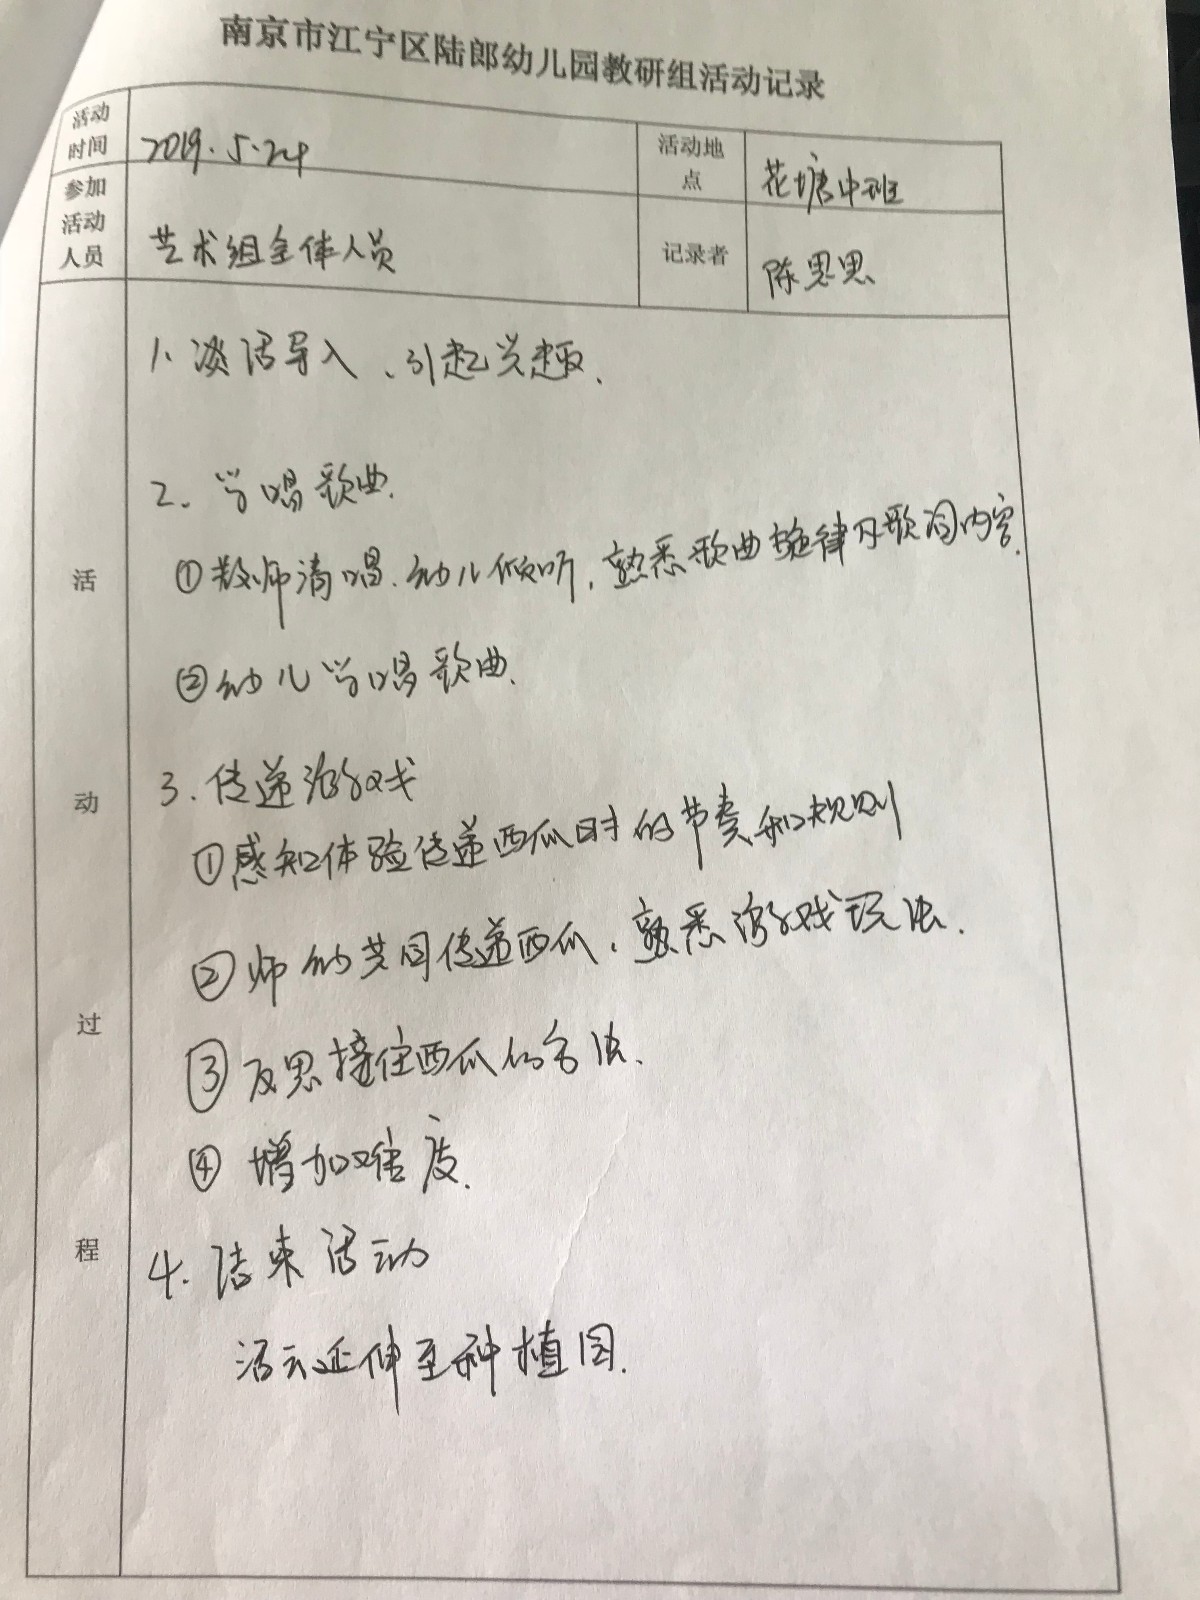 南京市江宁区陆郎幼儿园教研组活动记录
活动时间 2019.5.24 活动地点 花塘中班
参加活动人员 艺术组全体人员 记录者 陈思思
活动过程
1、谈话导入、引起兴趣.
2、学唱歌曲.
①教师清唱、幼儿倾听,熟悉歌曲旋律及歌词内容.
②幼儿学唱歌曲.
3.传递游戏
①感知体验传递西瓜时的节奏和规则
②师幼共同传递西瓜,熟悉游戏玩法.
③反思接住西瓜的方法.
④增加难度.
4.结束活动
活动延伸至种植园.